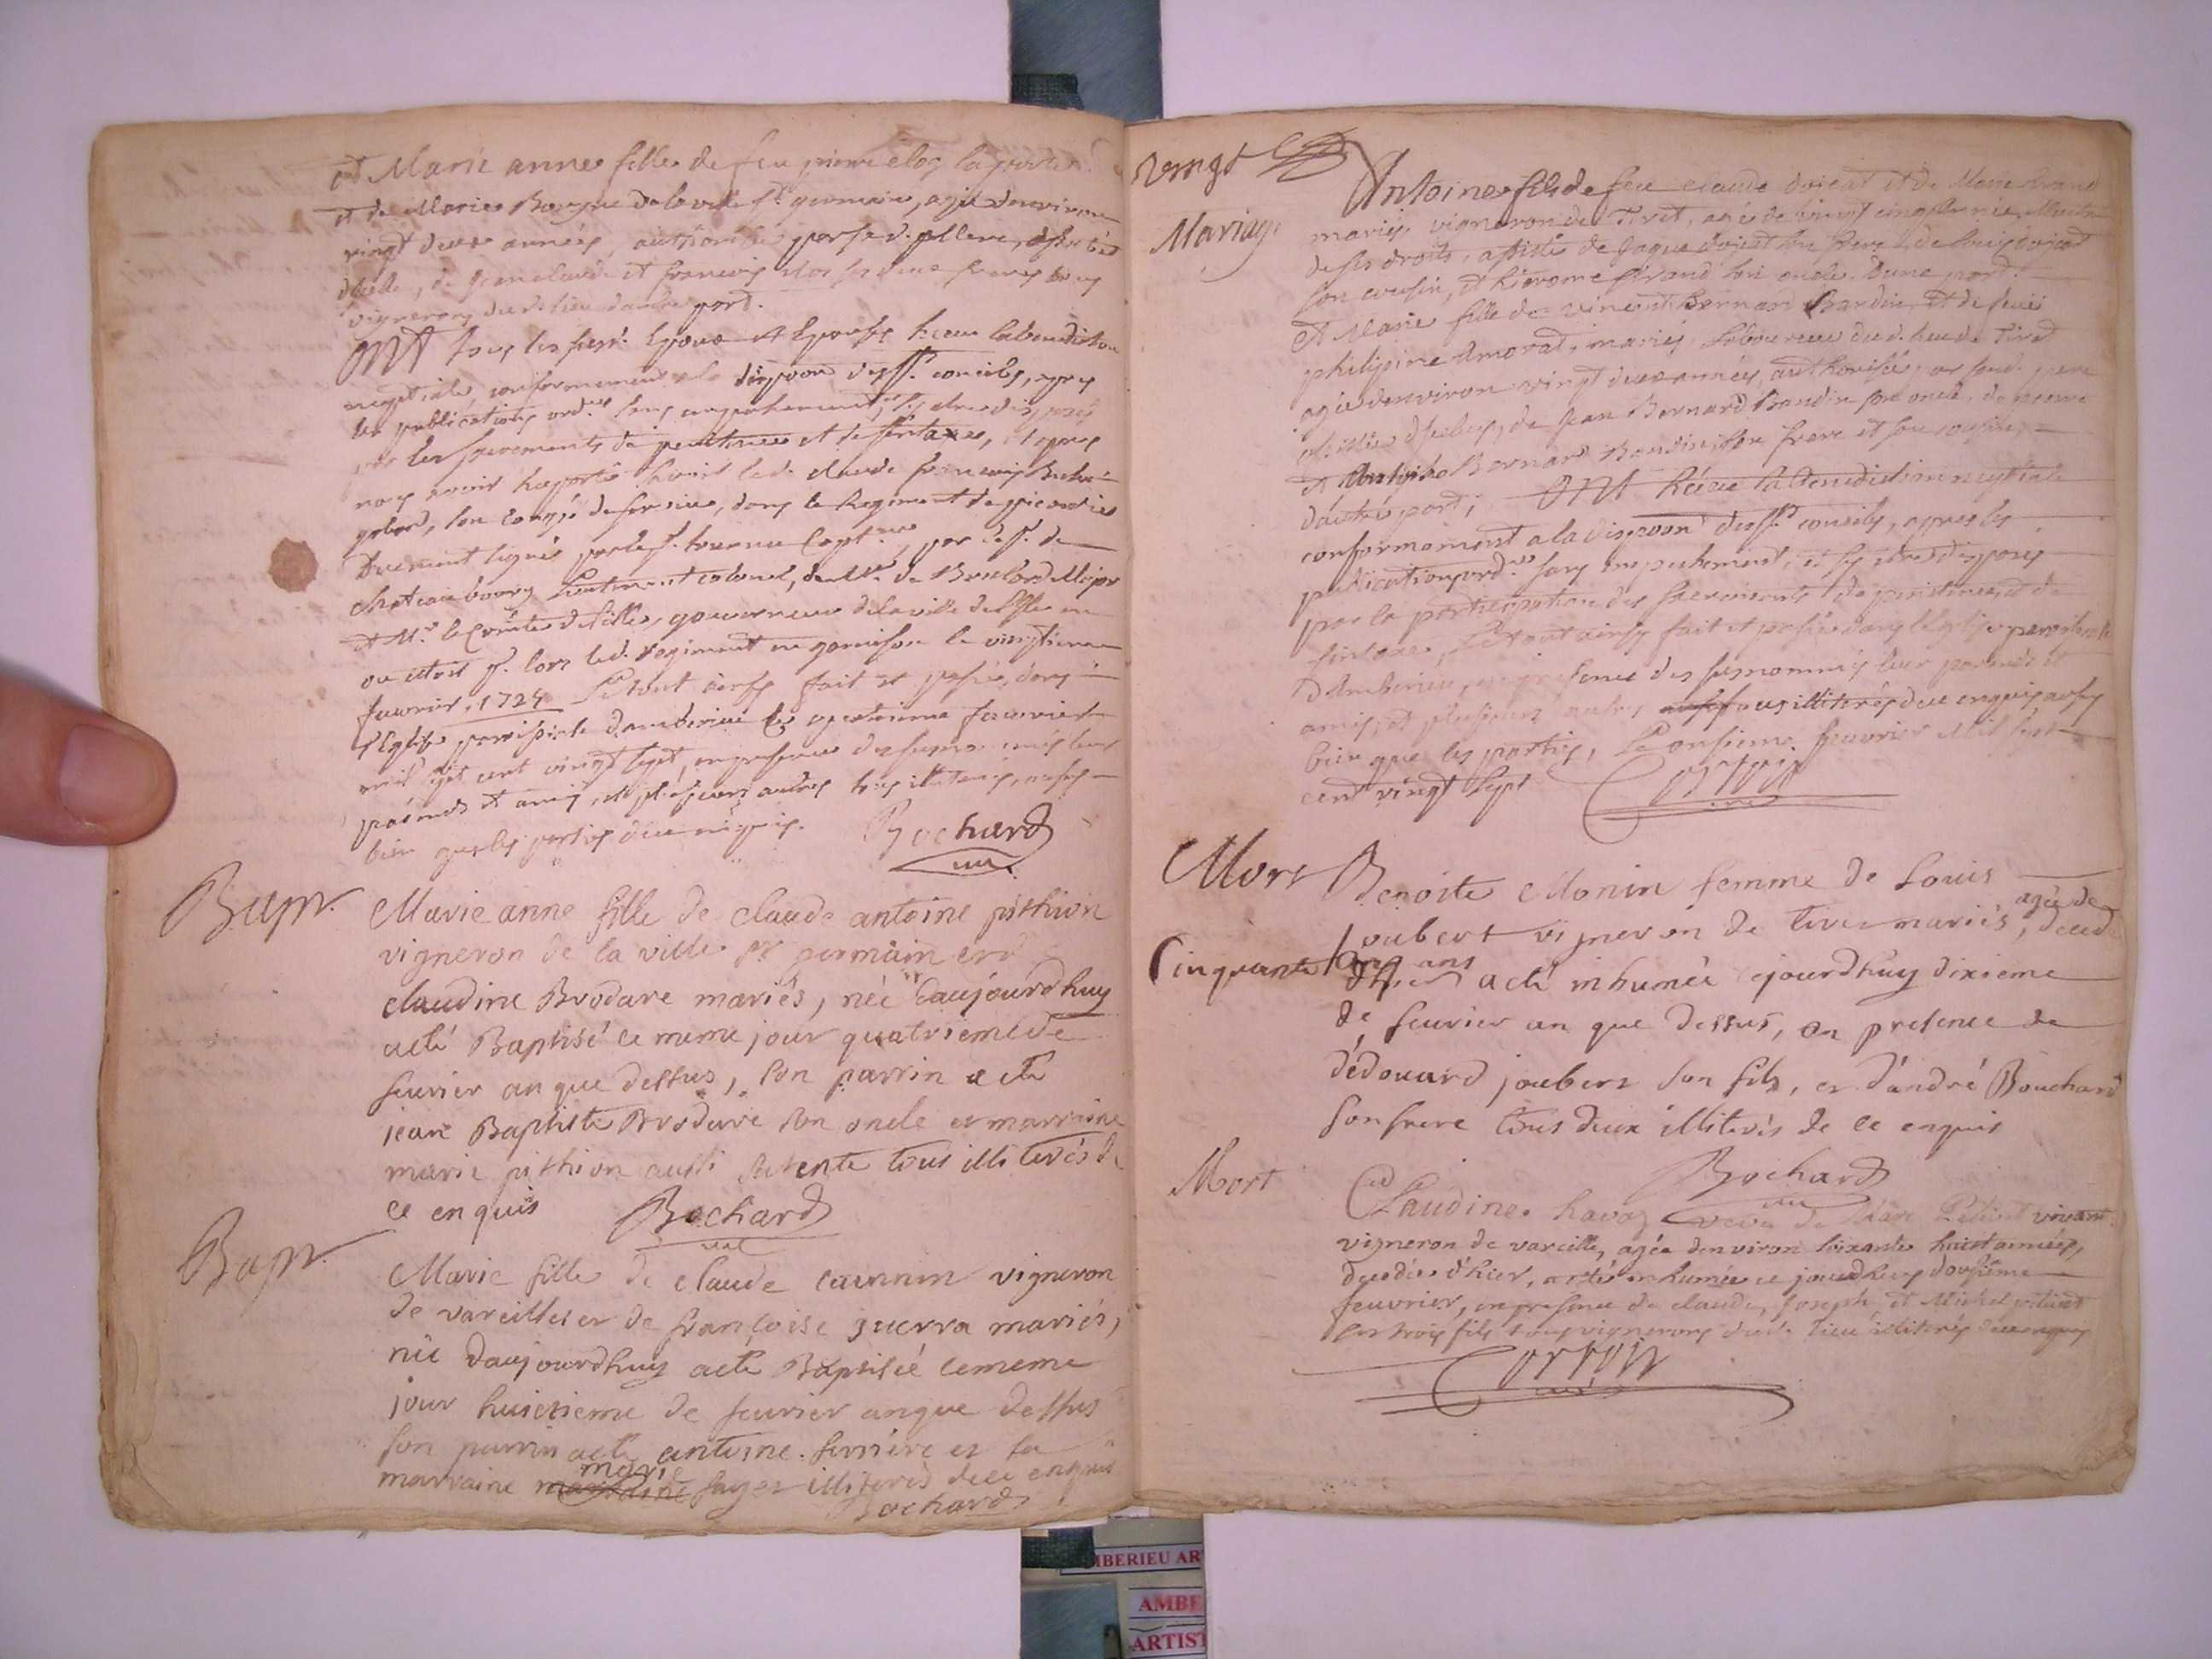 et Marie anne fille de feu pierre cloz la porte
et de Marie Borgne de la ville st germain, agée denviron
vingt deux années, authorisée par sad. mere, assistée
d'icelle, de Jean claude et francois cloz ses deux freres tous
vignerons dud. lieu dautre part.
ONT tous les susd. Epoux et Epouse Receu la benediction
nuptiale, conformement a la dispoon des Sts conciles, apres
les publications ordres sans empechement, s'y etre disposés
par les sacrements de penitence et de sintaxe, et apres
nous avoir raporté savoir led. claude francois
son congé de service, dans le Regiment de picardie
Duement signé par le sr. Capitne, par le sr. de
chateaubourg Lieutenant colonel, de Mr. de Major
et Mr. le Comte gouverneur de la ville de en
ou etoit pr. lors led. regiment en garnison le vingtieme
feuvrier 1724 Le tout ainsy fait et passé, dans
l'Eglise parrissiale damberieu le quatrieme feuvrier
mil sept cent vingt sept, en presence des susnommés leurs
parents et amis, et plusieurs autres tous illiterés, aussy
bien que les parties dece enquis. Bochard
Bapt. Marie anne fille de claude antoine pithion
vigneron de la ville st germain et d
claudine Brodare mariés, née daujourdhuy
a eté Baptisé ce meme jour quatrieme de
feurier an que dessus, son parrin a eté
jean Baptiste Brodare son oncle et marraine
marie pithion aussi sa tente tous illiterés de
ce enquis Bochard
Bapt. Marie fille de claude vigneron
de vareilles et de françoise guerra mariés,
née daujourdhuy a eté Baptisée ce meme
jour huictieme de feurier an que dessus
son parrin a eté antoine ferriere et sa
marraine marie illiterés de ce enquis
Bochard
vengt
Mariage Antoine fils de feu claude doicat et de Marie
mariés, vigneron de Tiret, agé de vingt cinq années, Maitre
de ses droits, assisté de Jaque doicat son frere, de Louis doicat
son cousin, et hierome son oncle. Dune part.
et Marie fille de vincent Bernard Baudin et de feue
philipine Amorad, mariés, laboureur dud. lieu de Tiret
agée denviron vingt deux années, authorisée par sond. pere
assistée d'iceluy, de Jean Bernard Baudin son oncle, de pierre
et Bernard Baudin son frere et son cousin,
dautre part; ONT Recue la benediction nuptiale
conformement a la dispoon des Sts conciles, apres les
publications ordres sans empechement, et s'y etre disposés
par la participation des sacrements de penitence et de
sintaxe, Le tout ainsy fait et passé dans l'Eglise parrissiale
Damberieu, en presence des susnommés leur parents et
amis, et plusieurs autres tous illiterés dece enquis aussy
bien que les parties, Le onsieme feuvrier Mil sept
cent vingt sept
Mort Benoite Monin femme de Louis
joubert vigneron de tiret mariés, agée de
Cinquante ans decedée
d'hier a eté inhumée cejourdhuy dixieme
de feurier an que dessus, en presence de
d'édouard joubert son fils, et d'andré Bouchard
son frere tous deux illiterés de ce enquis
Bochard
Mort Claudine havoz veve de Petinet vivant
vigneron de vareille, agée denviron soixante huict années,
decedée d'hier, a eté inhumée ce jourdhuy dousieme
feuvrier, en presence de claude, Joseph, et Michel petinet
ses trois fils tous vignerons dud. lieu illiterés dece enquis
MBERIEU AR
AMBE
ARTIST